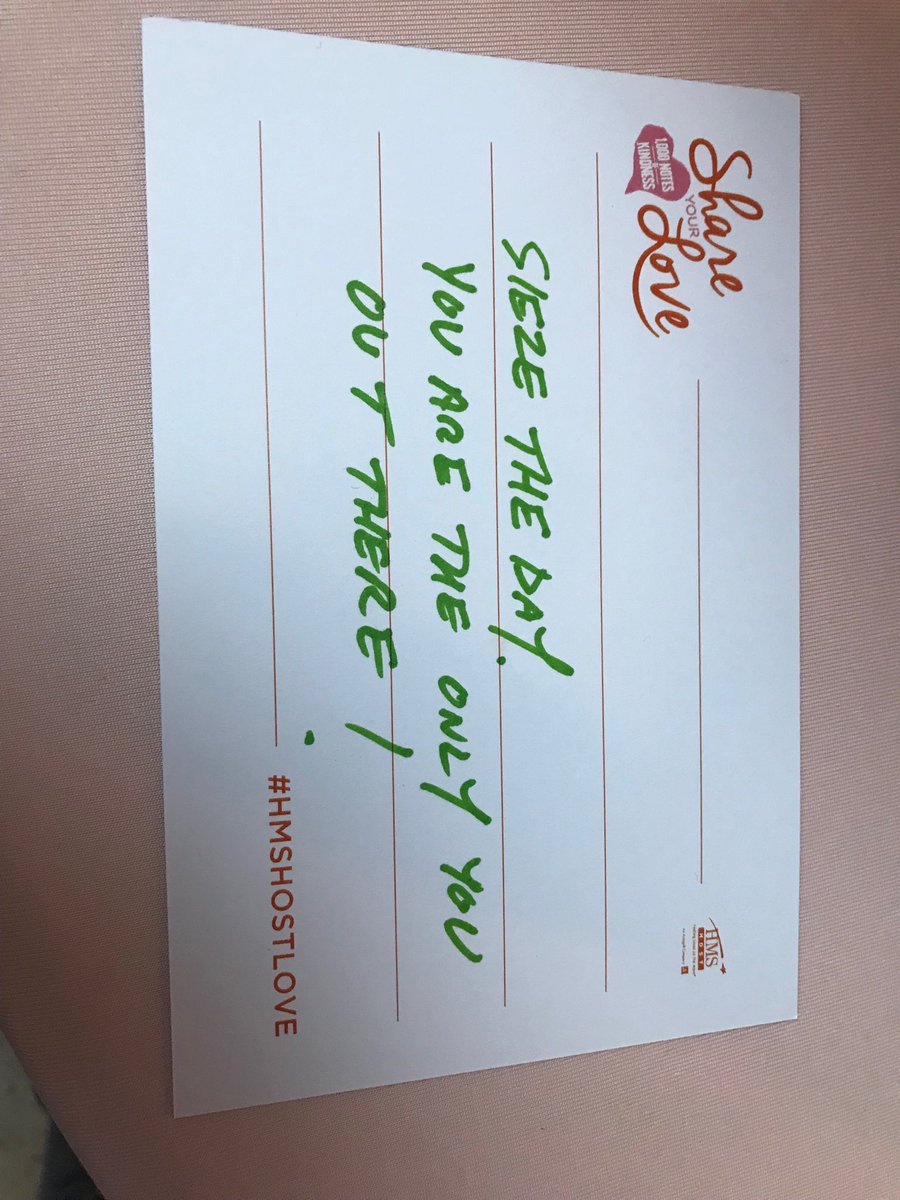 Share
YOUR
Love
1,000 NOTES
of
KINDNESS
HMS
HOST
SIEZE THE DAY.
YOU ARE THE ONLY YOU
OUT THERE!
#HMSHOSTLOVE